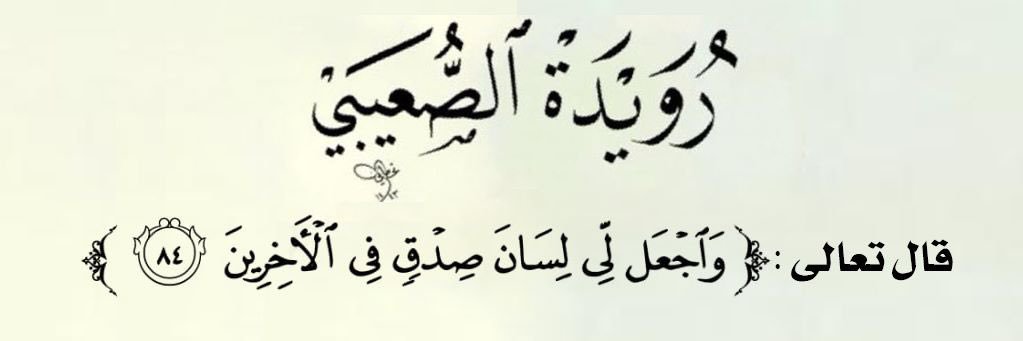 رُوَيْدَة ٱلصُّعيبَيْ
قال تعالى : ﴿ وَٱجْعَل لِّى لِسَانَ صِدْقٍ فِى ٱلْأَخِرِينَ ٨٤ ﴾